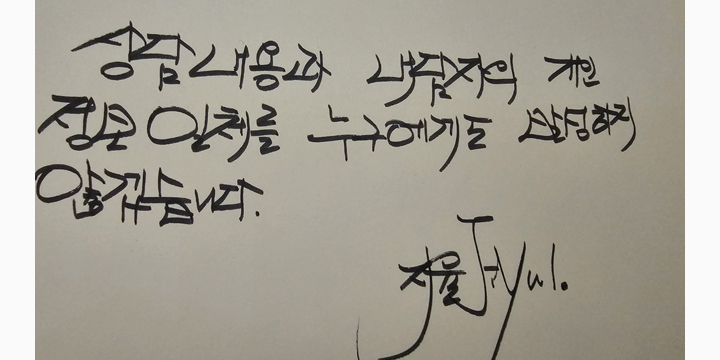 상담 내용과 낙담자의 개인
정보 일체를 누구에게도 발설하지
않겠습니다.
저율 J-yul.